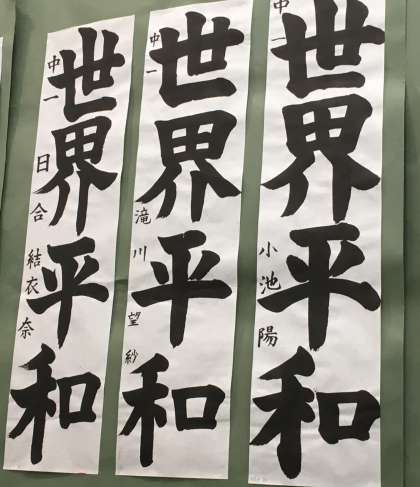 世界平和
中一 小池陽
世界平和
中一 滝川望紗
世界平和
中一 日合結衣奈